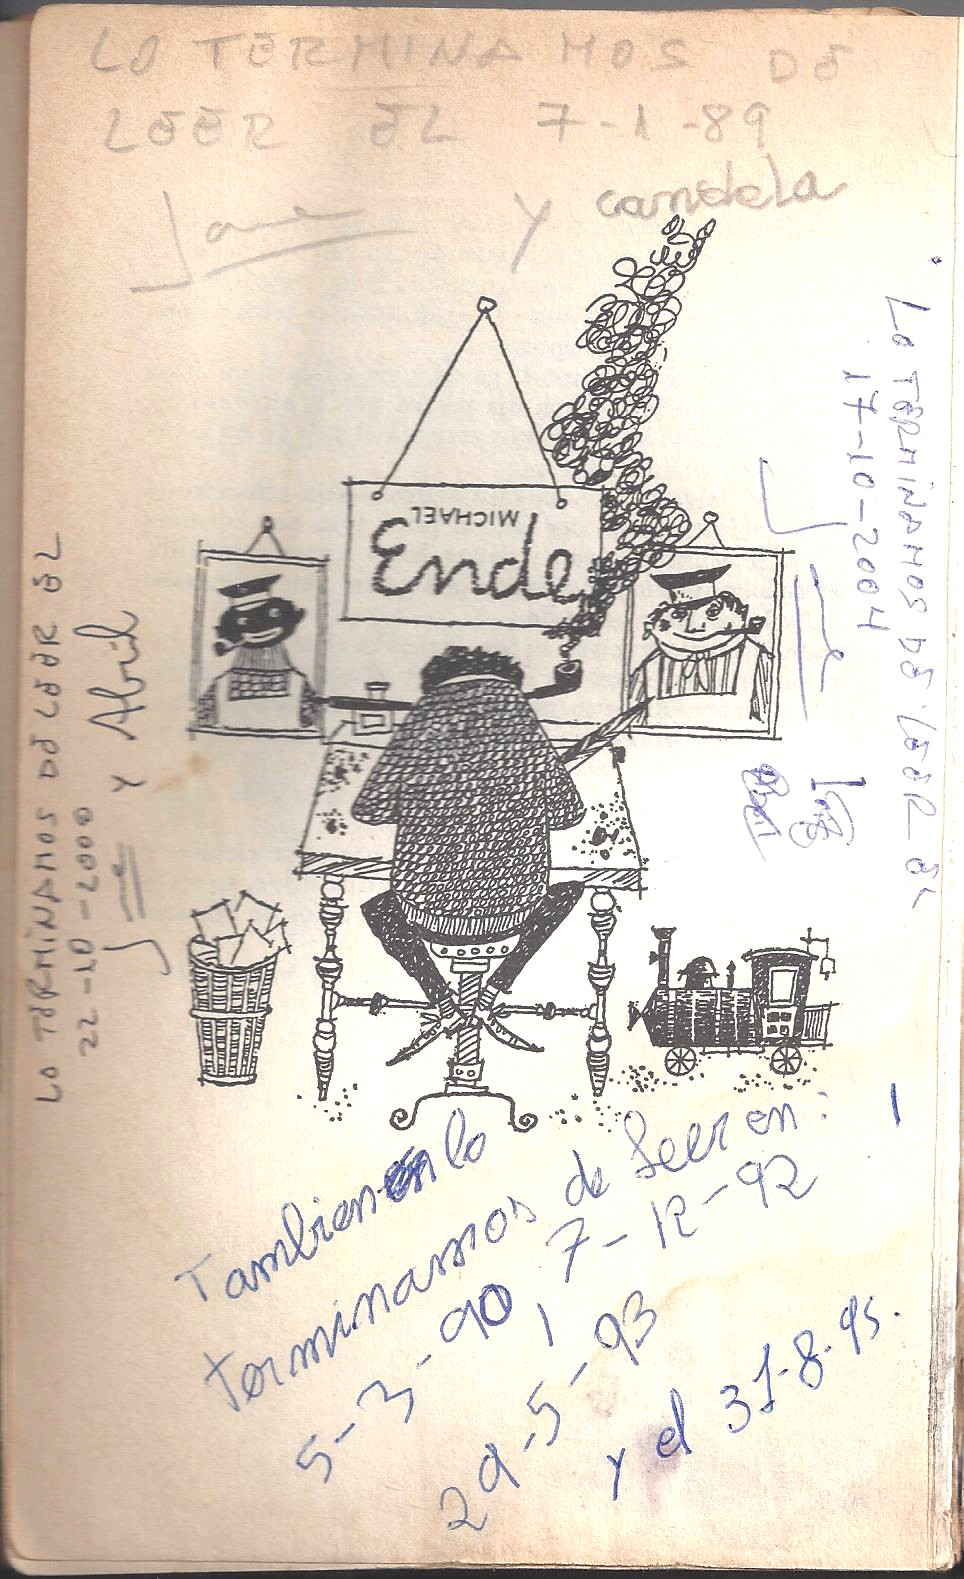 LO TERMINAMOS DE
LEER EL 7-1-89
y candela
MICHAEL
Ende
LO TERMINAMOS DE LEER EL
22-10-2000
y Abril
LO TERMINAMOS DE LEER EL
17-10-2004
Tambien lo
terminamos de leer en:
5-3-90, 7-12-92,
29-5-93
y el 31-8-95.